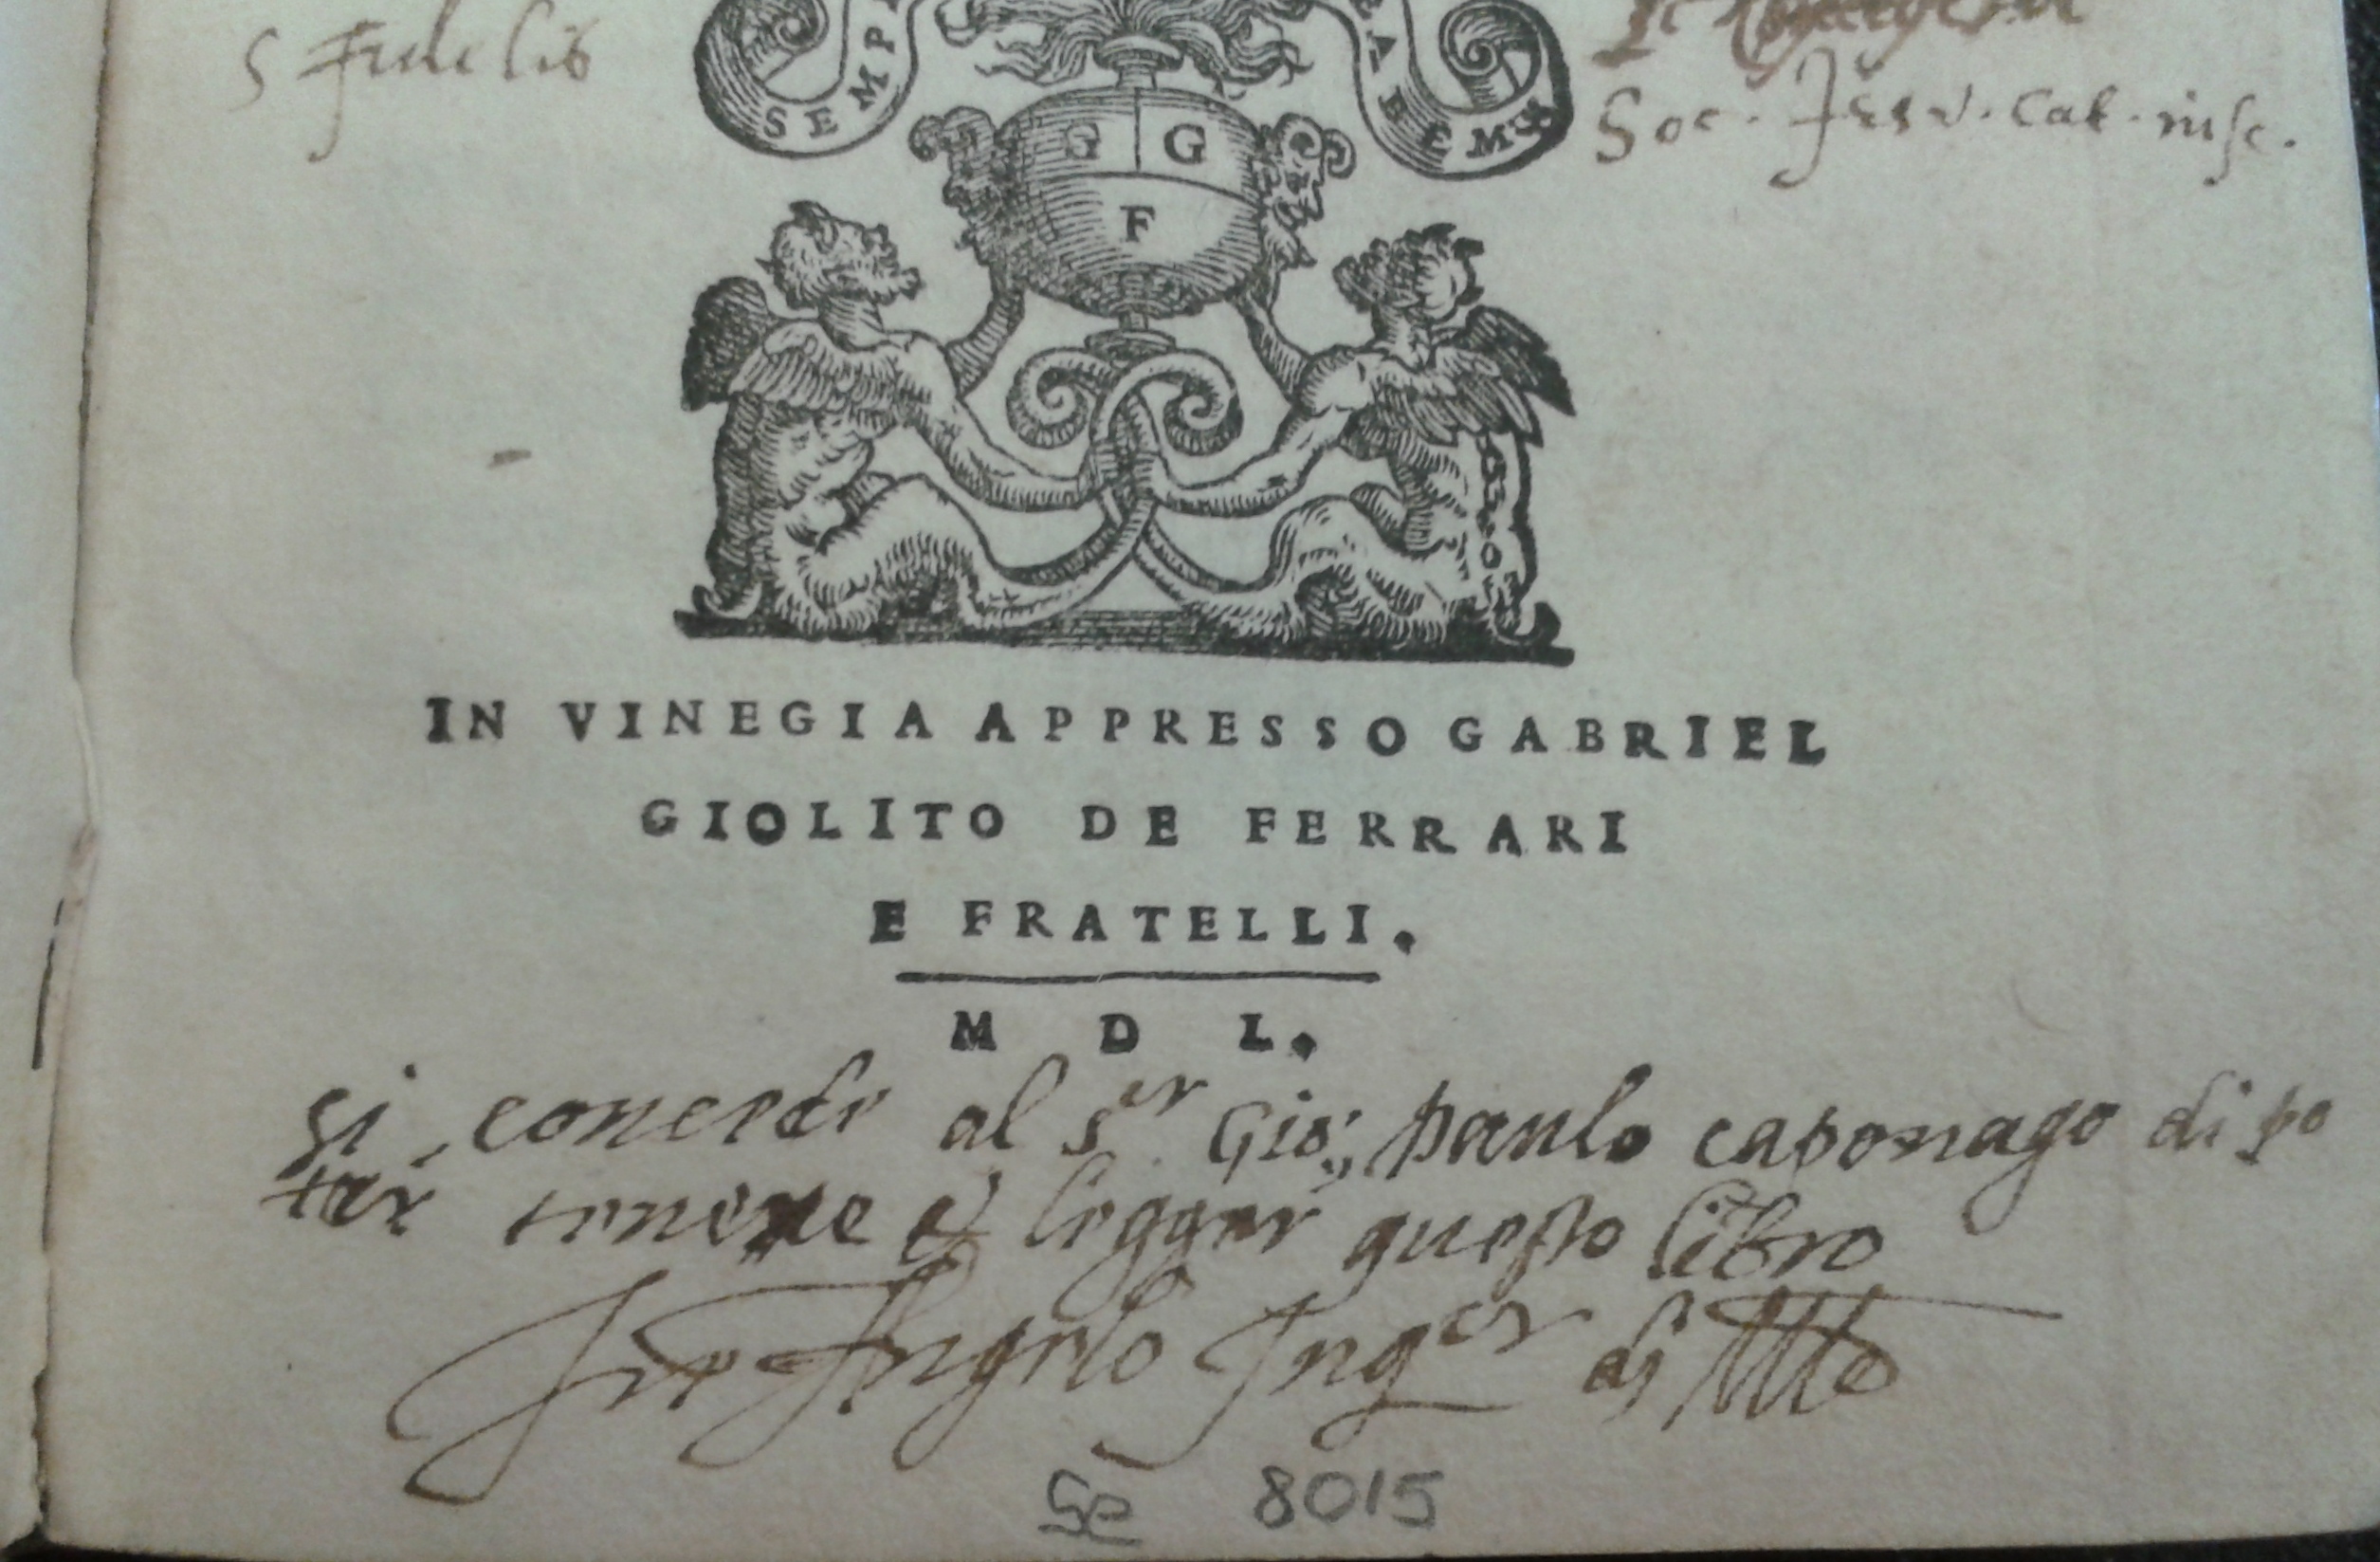 S Fidelis
SEMP
EA
E
EM
Soc. Jesu. Cat. insc.
G G
F
IN VINEGIA APPRESSO GABRIEL
GIOLITO DE FERRARI
E FRATELLI.
M D L.
si concede al s.er Gio: paulo caponago di po
ter tenere et legger questo libro
Angelo Inq.or di
Se 8015